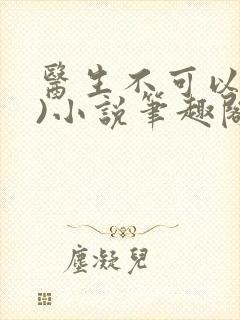 醫生不可以
)小說筆趣閣
塵凝兒